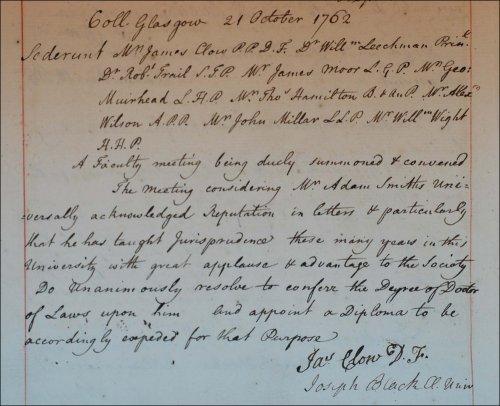 Coll. Glasgow 21 October 1762
Sederunt Mr James Clow P.P.D.F. Dr Willm Leechman Prinl.
Dr Robt. Trail S.T.P. Mr. James Moor L.G.P. Mr. Geo:
Muirhead L.H.P. Mr. Thos. Hamilton B. & an P. Mr. Alexr
Wilson A.P.P. Mr John Millar L.L.P. Mr. Willm Wight
H.H.P.
A Faculty meeting being duely summoned & convened
The meeting considering Mr Adam Smiths Uni=
=versally acknowledged Reputation in letters & particularly
that he has taught Jurisprudence these many years in this
University with great applause & advantage to the Society
Do Unanimously resolve to conferr the Degree of Doctor
of Laws upon him and appoint a Diploma to be
accordingly expeded for that Purpose
Jas Clow D.F.
Joseph Black Cl. Univ